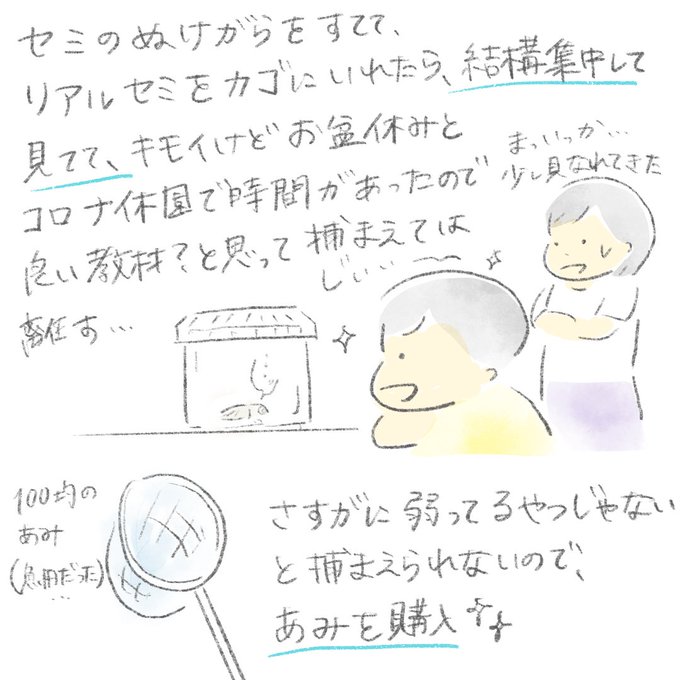 セミのぬけがらをすてて、
リアルセミをカゴにいれたら、結構集中して
見てて、キモイけどお盆休みと
コロナ休園で時間があったので
良い教材?と思って 捕まえては
まっいっか…
少し見なれてきた
じぃぃ〜〜
100均の
あみ
(魚用だった)
…
さすがに弱ってるやつじゃない
と捕まえられないので、
あみを購入